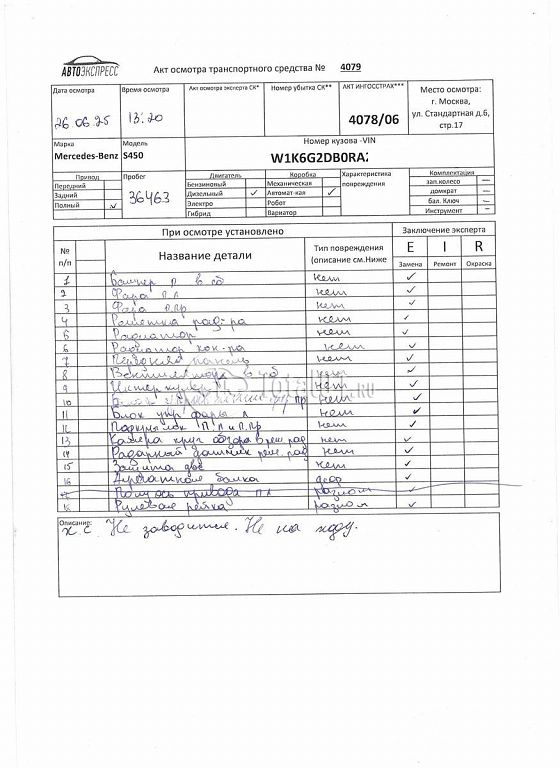 АВТОЭКСПРЕСС
Акт осмотра транспортного средства № 4079
Дата осмотра 26 06.25
Время осмотра 13.20
Акт осмотра эксперта СК*
Номер убытка СК**
АКТ ИНГОССТРАХ*** 4078/06
Место осмотра:
г. Москва,
ул. Стандартная д.6,
стр.17
Марка Mercedes-Benz
Модель S450
Номер кузова -VIN
W1K6G2DB0RA
Привод
Передний
Задний
Полный ✓
Пробег
36463
Двигатель
Бензиновый
Дизельный ✓
Электро
Гибрид
Коробка
Механическая
Автомат-кая ✓
Робот
Вариатор
Характеристика
повреждения
Комплектация
зап.колесо —
домкрат —
бал. Ключ —
Инструмент —
При осмотре установлено
Заключение эксперта
№ п/п
Название детали
Тип повреждения
(описание см.Ниже
E I R
Замена Ремонт Окраска
1 Бампер п в сб нет ✓
2 Фара п.л нет ✓
3 Фара п.пр нет ✓
4 Решетка рад-ра нет ✓
5 Радиатор нет ✓
6 Радиатор кон-ра нет ✓
7 Передняя панель нет ✓
8 Вентилятора в сб нет ✓
9 Интеркулер нет ✓
10 пр нет ✓
11 Блок упр фары л нет ✓
12 Подкрылок П Л и П.Пр нет ✓
13 Камера круг обзора в реш рад нет ✓
14 Радарный датчик реш. рад нет ✓
15 Защита двс нет ✓
16 Агрегатной балка деф ✓
17 Полуось привода П Л разлом ✓
18 Рулевая рейка разлом ✓
Описание:
х.с Не заводится. Не на ходу.